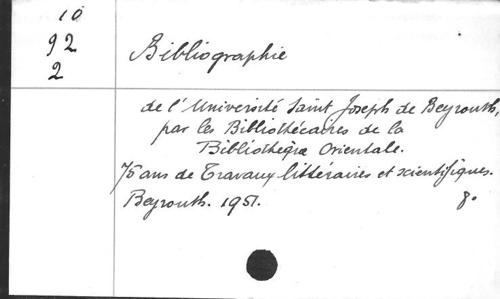 10
92
2
Bibliographie
de l'Université Saint Joseph de Beyrouth,
par les Bibliothécaires de la
Bibliothèque Orientale.
75 ans de Travaux littéraires et scientifiques.
Beyrouth. 1951. 8°